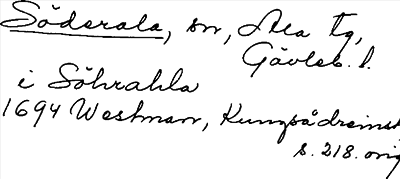 Söderala, sn, Ala tg,
Gävleb. l.
i Söhrahla
1694 Westman, Kungsådreinst
s. 218. orig